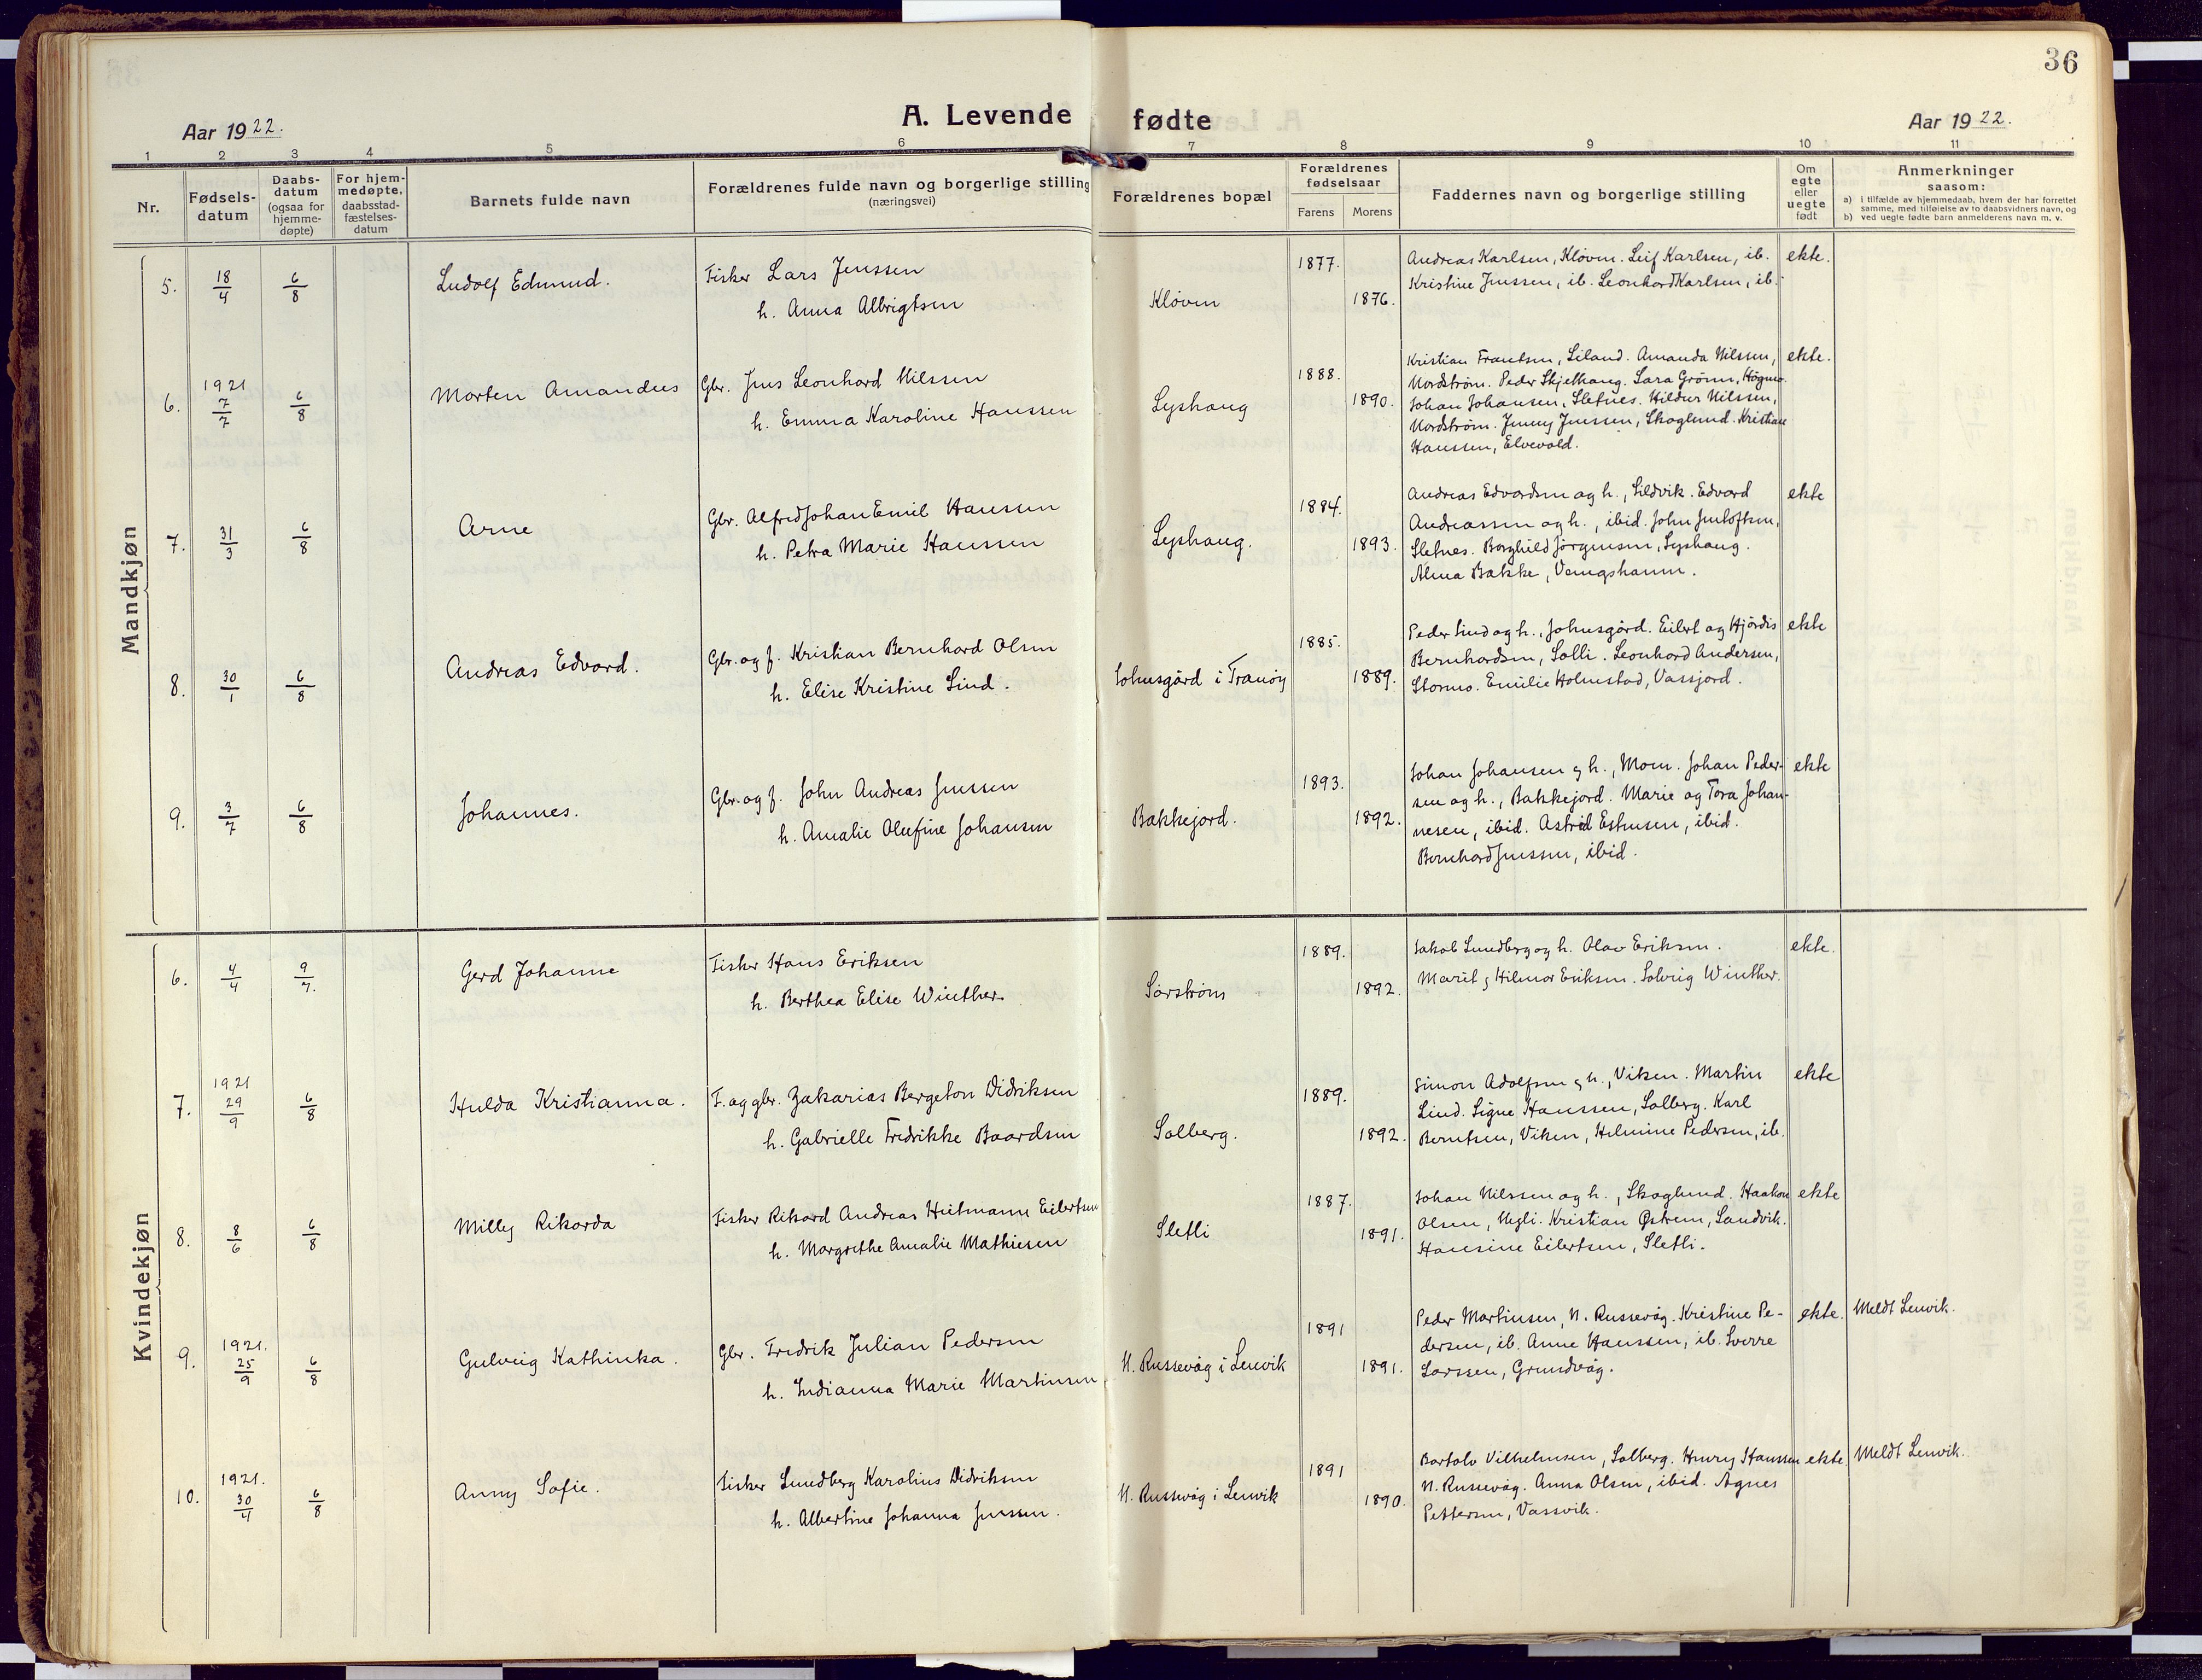 36
A. Levende fødte
Aar 1922.
Aar 1922.
1 2 3 4 5 6 7 8 9 10 11
Nr.
Fødsels-
datum
Daabs-
datum
(ogsaa for
hjemme-
døpte)
For hjem-
medøpte,
daabsstad-
fæstelses-
datum
Barnets fulde navn
Forældrenes fulde navn og borgerlige stilling
(næringsvei)
Forældrenes bopæl
Forældrenes
fødselsaar
Farens Morens
Faddernes navn og borgerlige stilling
Om
egte
eller
uegte
født
Anmerkninger
saasom:
a) i tilfælde av hjemmedaab, hvem der har forrettet
samme, med tilføielse av to daabsvidners navn, og
b) ved uegte fødte barn anmelderens navn m. v.
Mandkjøn
5. 18/4 6/8 Ludolf Edmund.
Fisker Lars Jenssen
h. Anna Albrigtsen
Kløven
1877.
1876.
Andreas Karlsen, Kløven. Leif Karlsen, ib.
Kristine Jenssen, ib. Leonhard Karlsen, ib.
ekte.
6. 1921 7/7 6/8 Morten Amandus
Gbr. Jens Leonhard Nilssen
h. Emma Karoline Hanssen
Lyshaug
1888.
1890.
Kristian Frantsen, Leland. Amanda Nilsen,
Nordstrøm. Peder Skjelhaug. Lara Grønn, Høgmo.
Johan Johansen, Sletnes. Hildur Nilssen,
Nordstrøm. Jenny Jenssen, Skoglund. Kristian
Hanssen, Elvevold.
ekte.
7. 31/3 6/8 Arne
Gbr. Alfred Johan Emil Hanssen
h. Petra Marie Hanssen
Lyshaug.
1884.
1893.
Andreas Edvardsen og h., Sildvik. Edvard
Andreassen og h., ibid. John Jentoftsen,
Sletnes. Borghild Jørgensen, Lyshaug.
Alma Bakke, Vangshamn.
ekte
8. 30/1 6/8 Andreas Edvard.
Gbr. og f. Kristian Bernhard Olsen
h. Elise Kristine Lind.
Johnsgård i Tranøy
1885.
1889.
Peder Lind og h., Johnsgård. Eilert og Hjördis
Bernhardsen, Solli. Leonhard Andersen,
Stormo. Emilie Holmstad, Vasjord.
ekte
9. 3/7 6/8 Johannes.
Gbr. og f. John Andreas Jenssen
h. Amalie Olufine Johansen
Bakkejord.
1893.
1892.
Johan Johansen og h., Moen. Johan Peder-
sen og h., Bakkejord. Marie og Tora Johan-
nesen, ibid. Astrid Estensen, ibid.
Bernhard Jenssen, ibid.
ekte
Kvindekjøn
6. 4/4 9/7. Gerd Johanne
Fisker Hans Eriksen
h. Berthea Elise Winther.
Sørstrøm
1889.
1892.
Jakob Lundberg og h. Olav Eriksen.
Marit og Hilmar Eriksen. Solveig Winther.
ekte.
7. 1921 29/9 6/8 Hulda Kristianna.
F. og gbr. Zakarias Bergeton Didriksen
h. Gabrielle Fredrikke Baardsen
Solberg.
1889.
1892.
Simon Adolfsen og h., Viken. Martin
Lind. Signe Hanssen, Solberg. Karl
Berntsen, Viken, Helmine Pedersen, ib.
ekte
8. 8/6 6/8 Milly Rikarda
Fisker Rikard Andreas Heitmann Eilertsen
h. Margrethe Amalie Mathiesen
Sletli
1887.
1891.
Johan Nilssen og h., Skoglund. Haakon
Olsen, Nygli. Kristian Østrem, Sandvik.
Hansine Eilertsen, Sletli.
ekte
9. 1921. 25/9 6/8 Gulveig Kathinka.
Gbr. Fredrik Julian Pedersen
h. Indianna Marie Martinsen
N. Russevåg i Lenvik
1891
1891.
Peder Martinsen, N. Russevåg. Kristine Pe-
dersen, ib. Anne Hanssen, ib. Sverre
Larssen, Grundvåg.
ekte.
Meldt Lenvik.
10. 1921. 30/4 6/8 Anny Sofie.
Fisker Lundberg Karolius Didriksen
h. Albertine Johanna Jenssen.
N. Russevåg i Lenvik
1891
1890.
Bartolv Vilhelmsen, Solberg. Henry Hanssen
N. Russevåg. Anna Olsen, ibid. Agnes
Pettersen, Vassvik.
ekte
Meldt Lenvik.